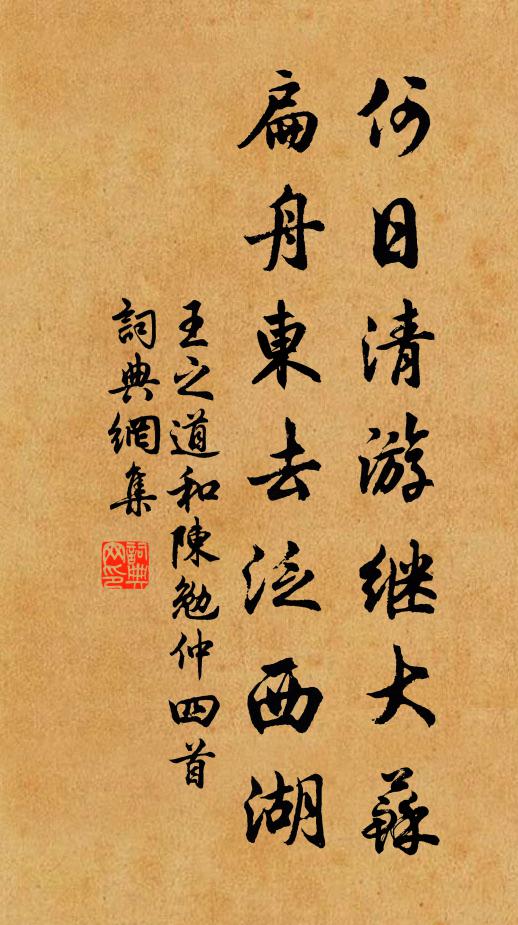 何日清游继大蘇
扁舟東去泛西湖
王之道和陳勉仲四首
詞典網集
詞典网印